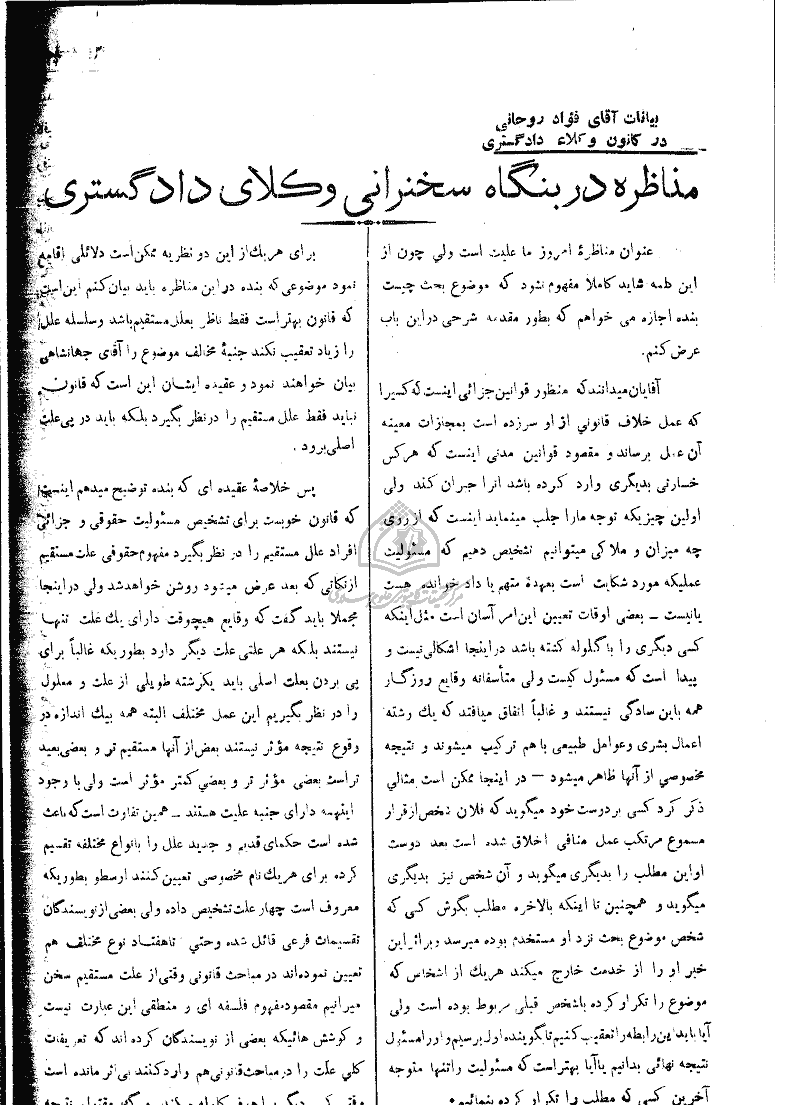 بیانات آقای فؤاد روحانی
در کانون وکلاء دادگستری
مناظره در بنگاه سخنرانی وکلای دادگستری
عنوان مناظرهٔ امروز ما علیت است ولی چون از
این کلمه شاید کاملا مفهوم نشود که موضوع بحث چیست
بنده اجازه می خواهم که بطور مقدمه شرحی دراین باب
عرض کنم.
آقایان میدانند که منظور قوانین جزائی اینست که کسیرا
که عمل خلاف قانونی از او سرزده است بمجازات معینه
آن عمل برساند و مقصود قوانین مدنی اینست که هرکس
خسارتی بدیگری وارد کرده باشد انرا جبران کند ولی
اولین چیزیکه توجه مارا جلب مینماید اینست که از روی
چه میزان و ملاکی میتوانیم تشخیص دهیم که مسئولیت
عملیکه مورد شکایت است بعهدهٔ متهم یا دادخوانده هست
یانیست – بعضی اوقات تعیین این امر آسان است مثل اینکه
کسی دیگری را با گلوله کشته باشد دراینجا اشکالی نیست و
پیدا است که مسئول کیست ولی متأسفانه وقایع روزگار
همه باین سادگی نیستند و غالباً اتفاق میافتد که یك رشته
اعمال بشری وعوامل طبیعی با هم ترکیب میشوند و نتیجه
مخصوصی از آنها ظاهر میشود – در اینجا ممکن است مثالی
ذکر کرد کسی بردوست خود میگوید که فلان شخص از قرار
مسموع مرتکب عمل منافی اخلاق شده است بعد دوست
او این مطلب را بدیگری میگوید و آن شخص نیز بدیگری
میگوید و همچنین تا اینکه بالاخره مطلب بگوش کسی که
شخص موضوع بحث نزد او مستخدم بوده میرسد و براثر این
خبر او را از خدمت خارج میکند هریك از اشخاص که
موضوع را تکرار کرده باشخص قبلی مربوط بوده است ولی
آیا باید این رابطه را تعقیب کنیم تا بگوینده اول برسیم و او را مسئول
نتیجه نهائی بدانیم یا آیا بهتر است که مسئولیت را تنها متوجه
آخرین کسی که مطلب را تکرار کرده بنمائیم.
برای هریك از این دو نظریه ممکن است دلائلی اقامه
نمود موضوعی که بنده در این مناظره باید بیان کنم این است
که قانون بهتر است فقط ناظر بعلل مستقیم باشد وسلسله علل
را زیاد تعقیب نکند جنبهٔ مخالف موضوع را آقای جهانشاهی
بیان خواهند نمود و عقیده ایشان این است که قانون
نباید فقط علل مستقیم را درنظر بگیرد بلکه باید در پی علت
اصلی برود.
پس خلاصهٔ عقیده ای که بنده توضیح میدهم اینست
که قانون خوبست برای تشخیص مسئولیت حقوقی و جزائی
افراد علل مستقیم را در نظر بگیرد مفهوم حقوقی علت مستقیم
از نکاتی که بعد عرض میشود روشن خواهد شد ولی در اینجا
مجملا باید گفت که وقایع هیچوقت دارای یك علت تنها
نیستند بلکه هر علتی علت دیگر دارد بطوریکه غالباً برای
پی بردن بعلت اصلی باید یکرشته طویلی از علت و معلول
را در نظر بگیریم این عمل مختلف البته همه بیك اندازه در
وقوع نتیجه مؤثر نیستند بعض از آنها مستقیم تر و بعضی بعید
تر است بعضی مؤثر تر و بعضی کمتر مؤثر است ولی با وجود
اینهمه دارای جنبه علیت هستند – همین تفاوت است که باعث
شده است حکمای قدیم و جدید علل را بانواع مختلفه تقسیم
کرده برای هریك نام مخصوصی تعیین کنند ارسطو بطوریکه
معروف است چهار علت تشخیص داده ولی بعضی از نویسندگان
تقسیمات فرعی قائل شده وحتی تا هفتاد نوع مختلف هم
تعیین نموده‌اند در مباحث قانونی وقتی از علت مستقیم سخن
میرانیم مقصود مفهوم فلسفه ای و منطقی این عبارت نیست
و کوشش هائیکه بعضی از نویسندگان کرده اند که تعریفات
کلی علت را در مباحث قانونی هم وارد کنند بی اثر مانده است
وقتی کسی دیگر را هدف گلوله